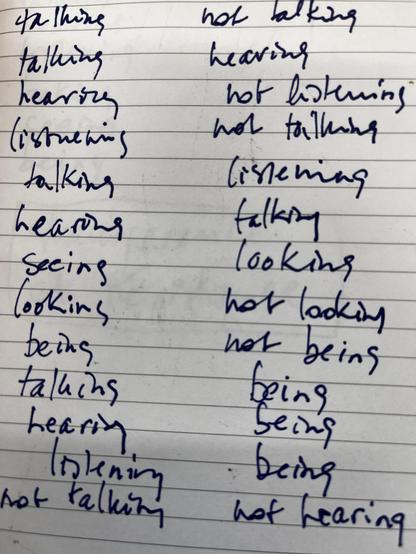 talking not talking
talking hearing
hearing not listening
listnening not talking
talking listening
hearing talking
seeing looking
looking not looking
being not being
talking being
hearing being
listening being
not talking not hearing